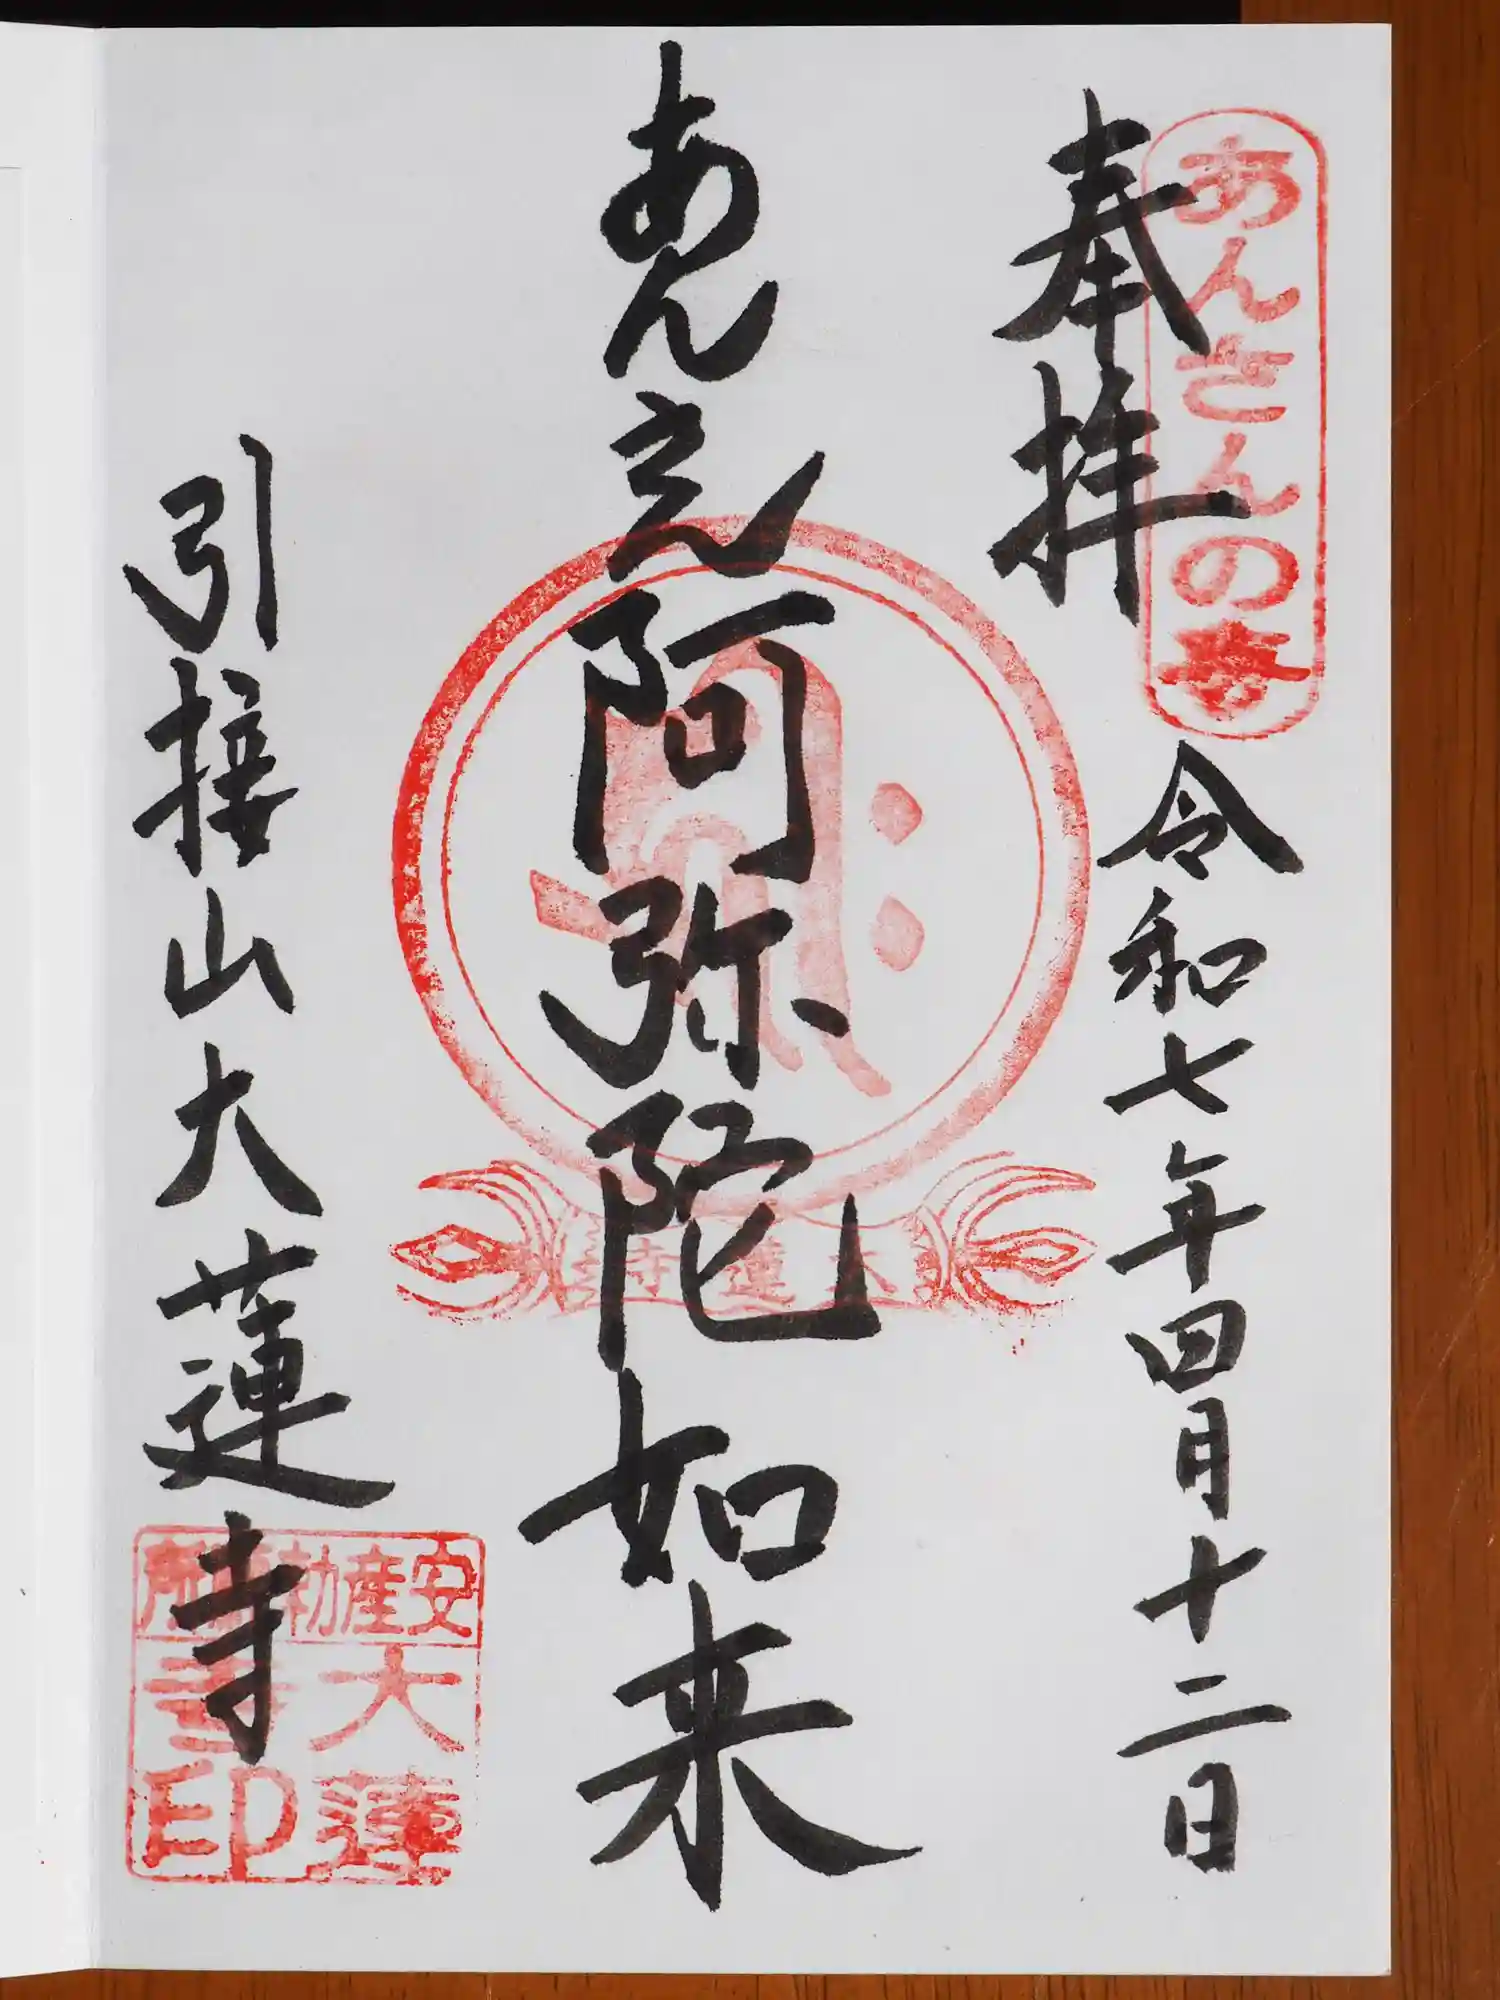 あんさんの寺
奉拝
令和七年四月十二日
あんさん阿弥陀如来
大蓮寺
引接山大蓮寺
安産勅願所
大蓮
寺印